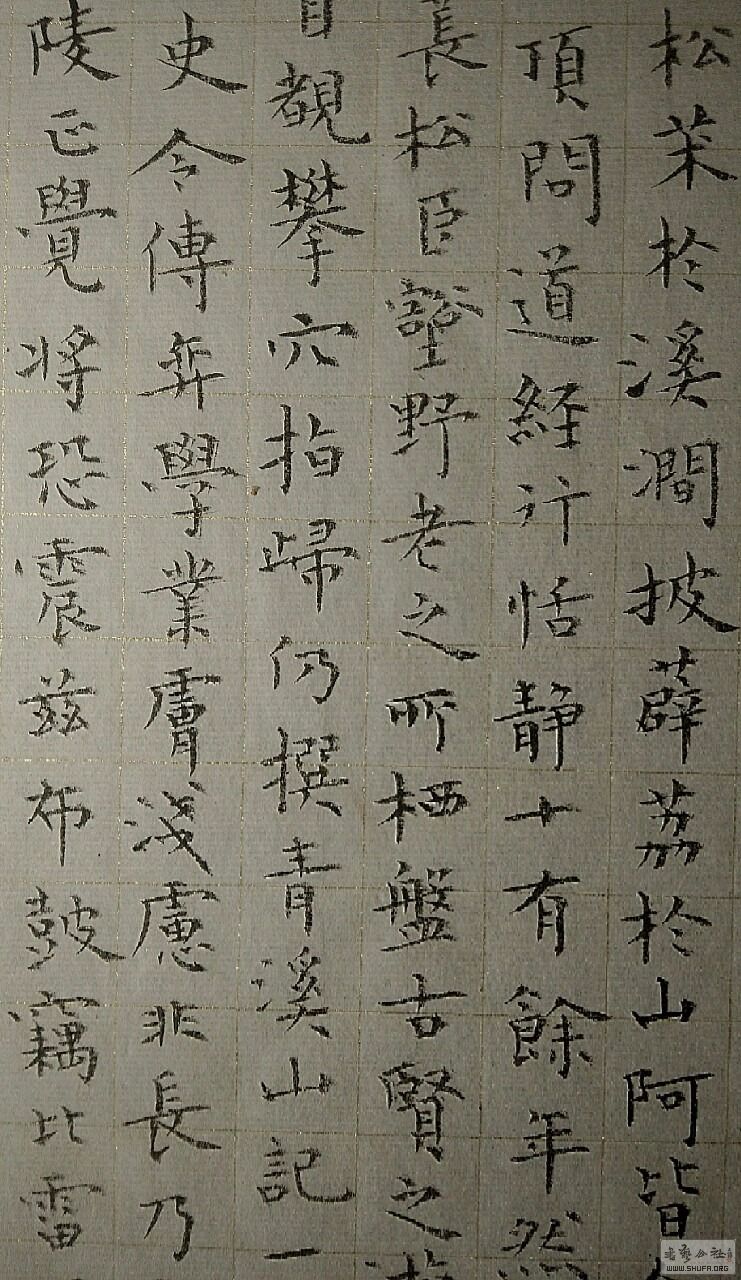 松苿於溪澗披薜荔於山阿皆
頂問道経行恬靜十有餘年然
長松臣壑野老之所栖盤古賢之遊
覩攀穴指歸仍撰青溪山記一
史今傳弈學業膚淺慮非長乃
陵正覺將恐震茲布鼓竊比雷
WWW.SHUFA.ORG